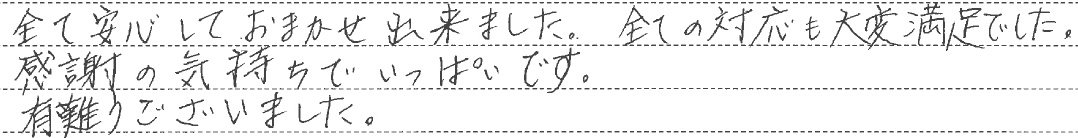 全て安心しておまかせ出来ました。全ての対応も大変満足でした。
感謝の気持ちでいっぱいです。
有難うございました。